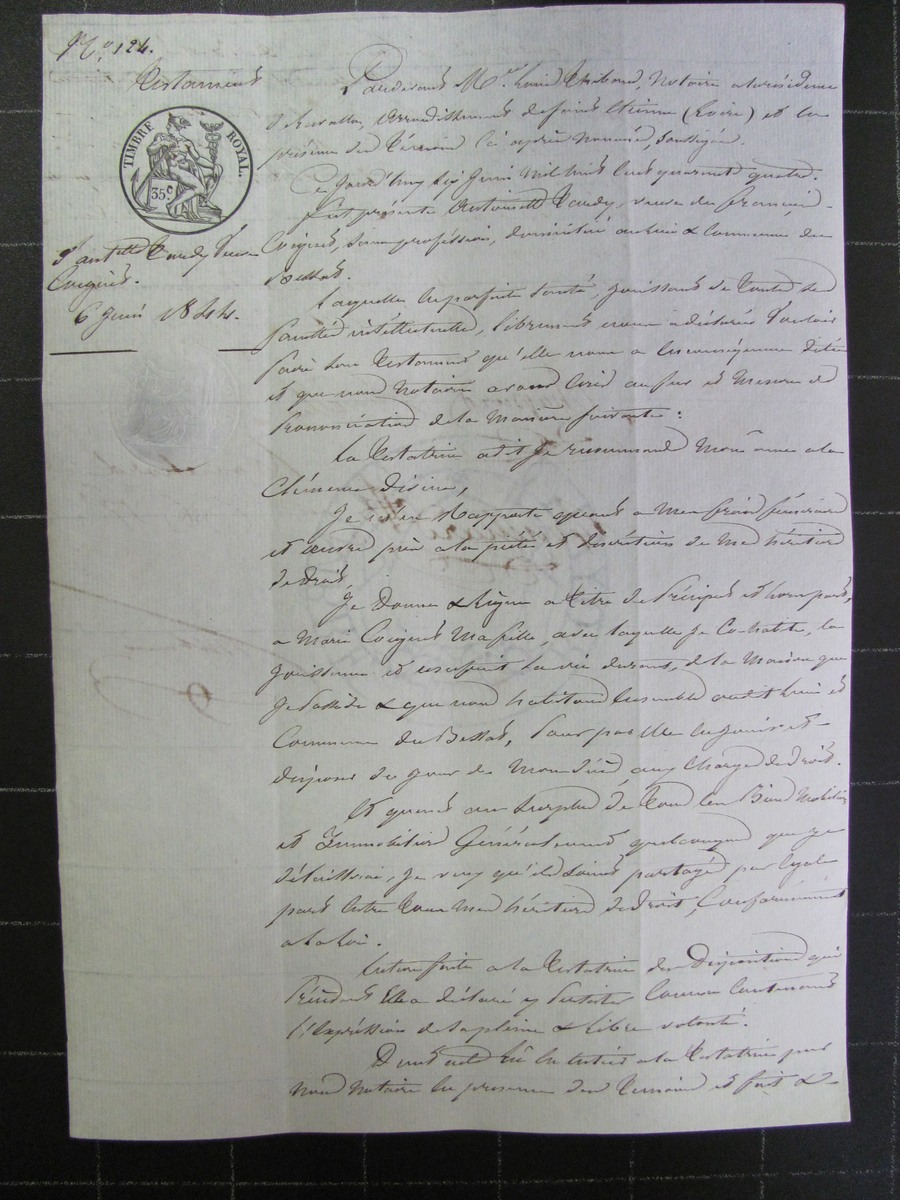 N.º 124.
Testament
TIMBRE ROYAL.
35 c
Antette Tardy veuve
6 Juin 1844.
Pardevant Me Louis Thibaud, Notaire à la résidence
arrondissement de Saint Etienne (Loire) et en
présence des Témoins ci après nommés, soussignés.
Ce jourd'huy six Juin mil huit cent quarante quatre.
Fut présente Antoinette Tardy, veuve de François
sans profession, domiciliée au lieu & Commune du
Bessat.
Laquelle en parfaite santé, jouissant de toutes ses
facultés intellectuelles, librement nous a déclaré vouloir
faire son Testament qu'elle nous a en conséquence dicté
et que nous Notaire avons écrit au fur et mesure de
prononciation de la manière suivante :
La Testatrice a dit je recommande mon âme à la
Clémence divine,
Je m'en rapporte quant à mes frais funéraires
et œuvres pies à la piété et discrétion de mes héritiers
de droit,
Je Donne & Lègue à titre de Préciput et hors part,
à Marie ma fille, avec laquelle je cohabite, la
jouissance et usufruit sa vie durant, de la Maison que
je possède & que nous habitons ensemble audit lieu et
Commune du Bessat, pour par elle en jouir et
disposer du jour de mon décès aux charges de droit.
Et quant au surplus de tous les Biens Mobiliers
et Immobiliers généralement quelconques que je
délaisserai, je veux qu'ils soient partagés par égale
part entre tous mes héritiers de droit, conformément
à la loi.
Lecture faite à la Testatrice des Dispositions qui
Précèdent Elle a déclaré y Persister comme contenant
l'Expression de sa pleine & libre volonté.
Dont acte lu en entier à la Testatrice par
nous Notaire en présence des Témoins et fait &